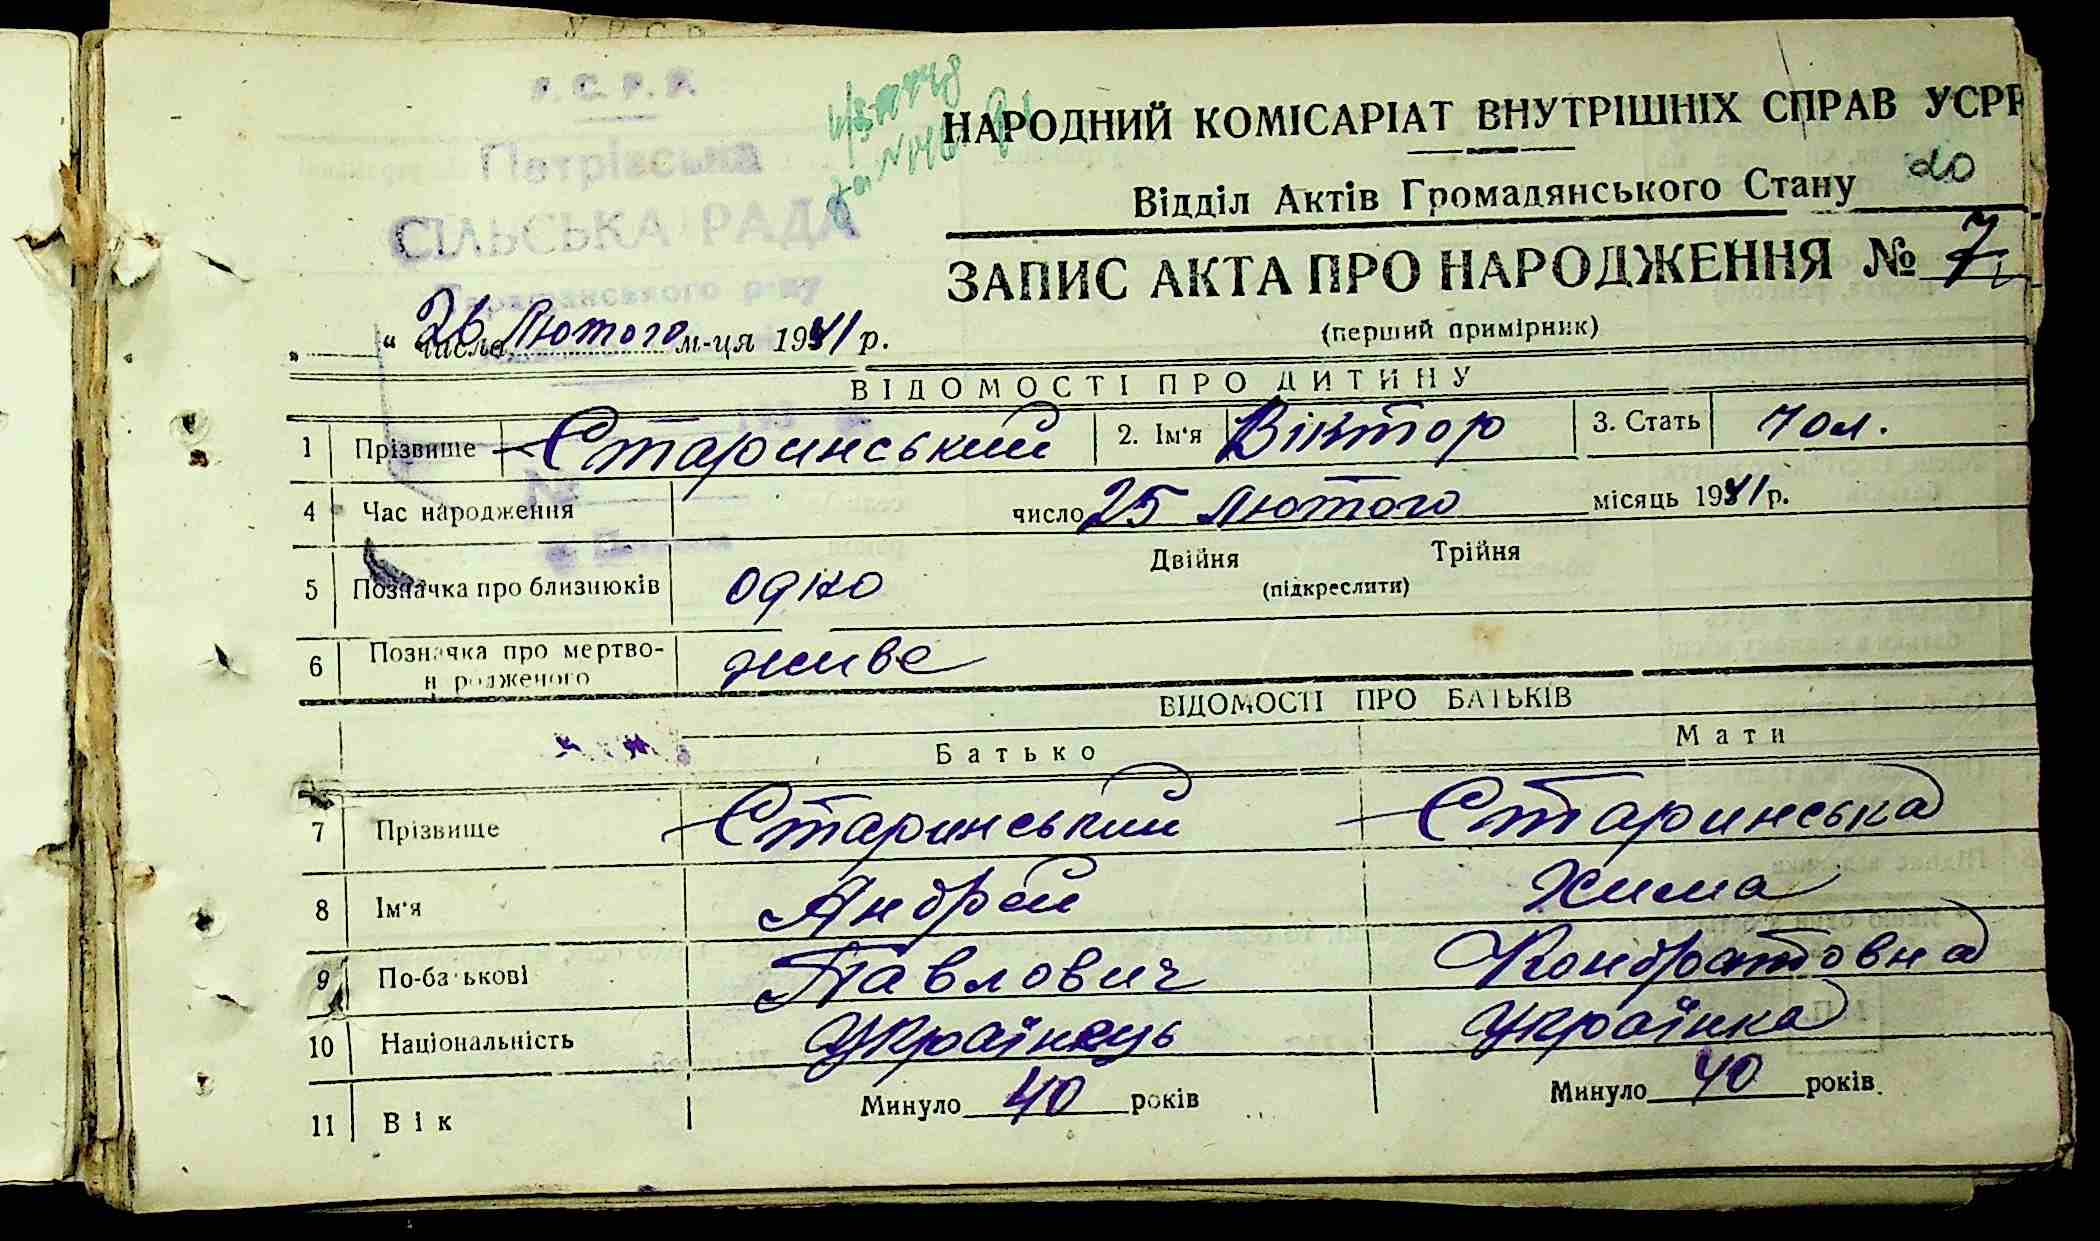 У.С.Р.Р.
Петрівська
СІЛЬСЬКА РАДА
Таращанського р-ну
НАРОДНИЙ КОМІСАРІАТ ВНУТРІШНІХ СПРАВ УСРР
Відділ Актів Громадянського Стану
20
ЗАПИС АКТА ПРО НАРОДЖЕННЯ № 7
(перший примірник)
„ “ числа 26 Лютого м-ця 1941 р.
ВІДОМОСТІ ПРО ДИТИНУ
1 Прізвище Старинський 2. Ім'я Віктор 3. Стать чол.
4 Час народження число 25 Лютого місяць 1941 р.
№
5 Позначка про близнюків одно Двійня Трійня
(підкреслити)
6 Позначка про мертво-
народженого живе
ВІДОМОСТІ ПРО БАТЬКІВ
Батько Мати
7 Прізвище Старинський Старинська
8 Ім'я Андрей Хима
9 По-батькові Павлович Кондратовна
10 Національність Українець Українка
11 Вік Минуло 40 років Минуло 40 років.